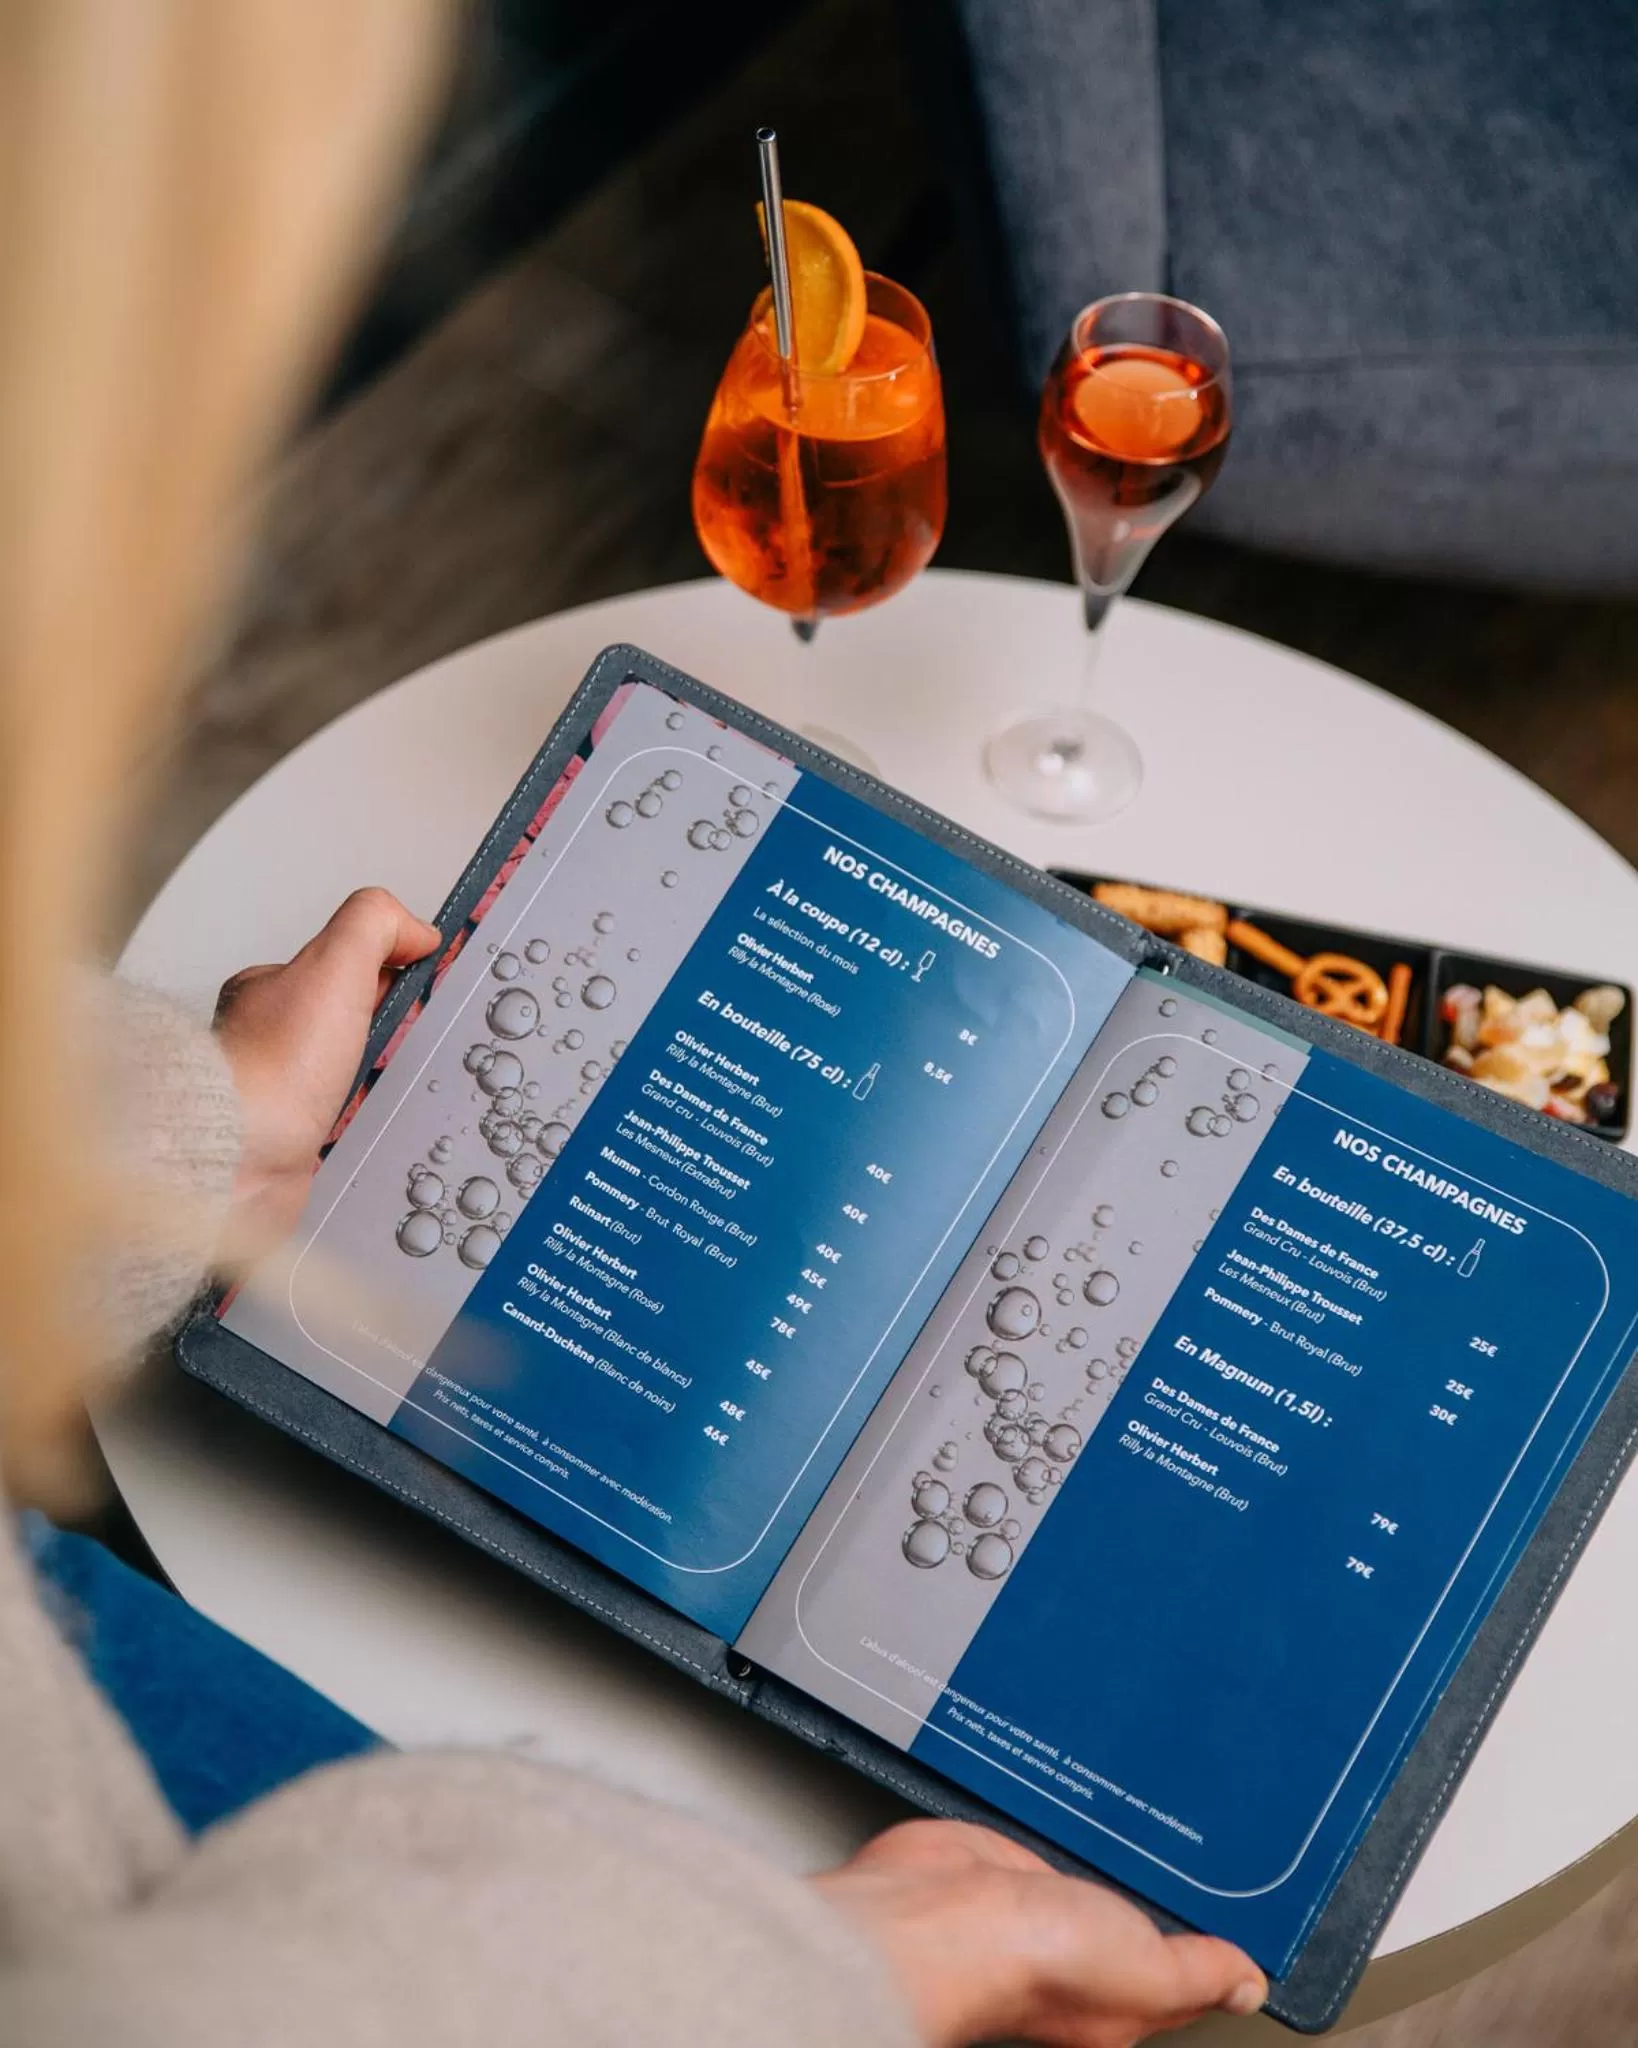 NOS CHAMPAGNES
À la coupe (12 cl) :
La sélection du mois 8€
Olivier Herbert
Rilly la Montagne (Rosé) 8,5€
En bouteille (75 cl) :
Olivier Herbert
Rilly la Montagne (Brut) 40€
Des Dames de France
Grand cru - Louvois (Brut) 40€
Jean-Philippe Trousset
Les Mesneux (ExtraBrut) 40€
Mumm - Cordon Rouge (Brut) 45€
Pommery - Brut Royal (Brut) 49€
Ruinart (Brut) 78€
Olivier Herbert
Rilly la Montagne (Rosé) 45€
Olivier Herbert
Rilly la Montagne (Blanc de blancs) 48€
Canard-Duchêne (Blanc de noirs) 46€
L'abus d'alcool est dangereux pour votre santé, à consommer avec modération.
Prix nets, taxes et service compris.
NOS CHAMPAGNES
En bouteille (37,5 cl) :
Des Dames de France
Grand Cru - Louvois (Brut) 25€
Jean-Philippe Trousset
Les Mesneux (Brut) 25€
Pommery - Brut Royal (Brut) 30€
En Magnum (1,5l) :
Des Dames de France
Grand Cru - Louvois (Brut) 79€
Olivier Herbert
Rilly la Montagne (Brut) 79€
L'abus d'alcool est dangereux pour votre santé, à consommer avec modération.
Prix nets, taxes et service compris.